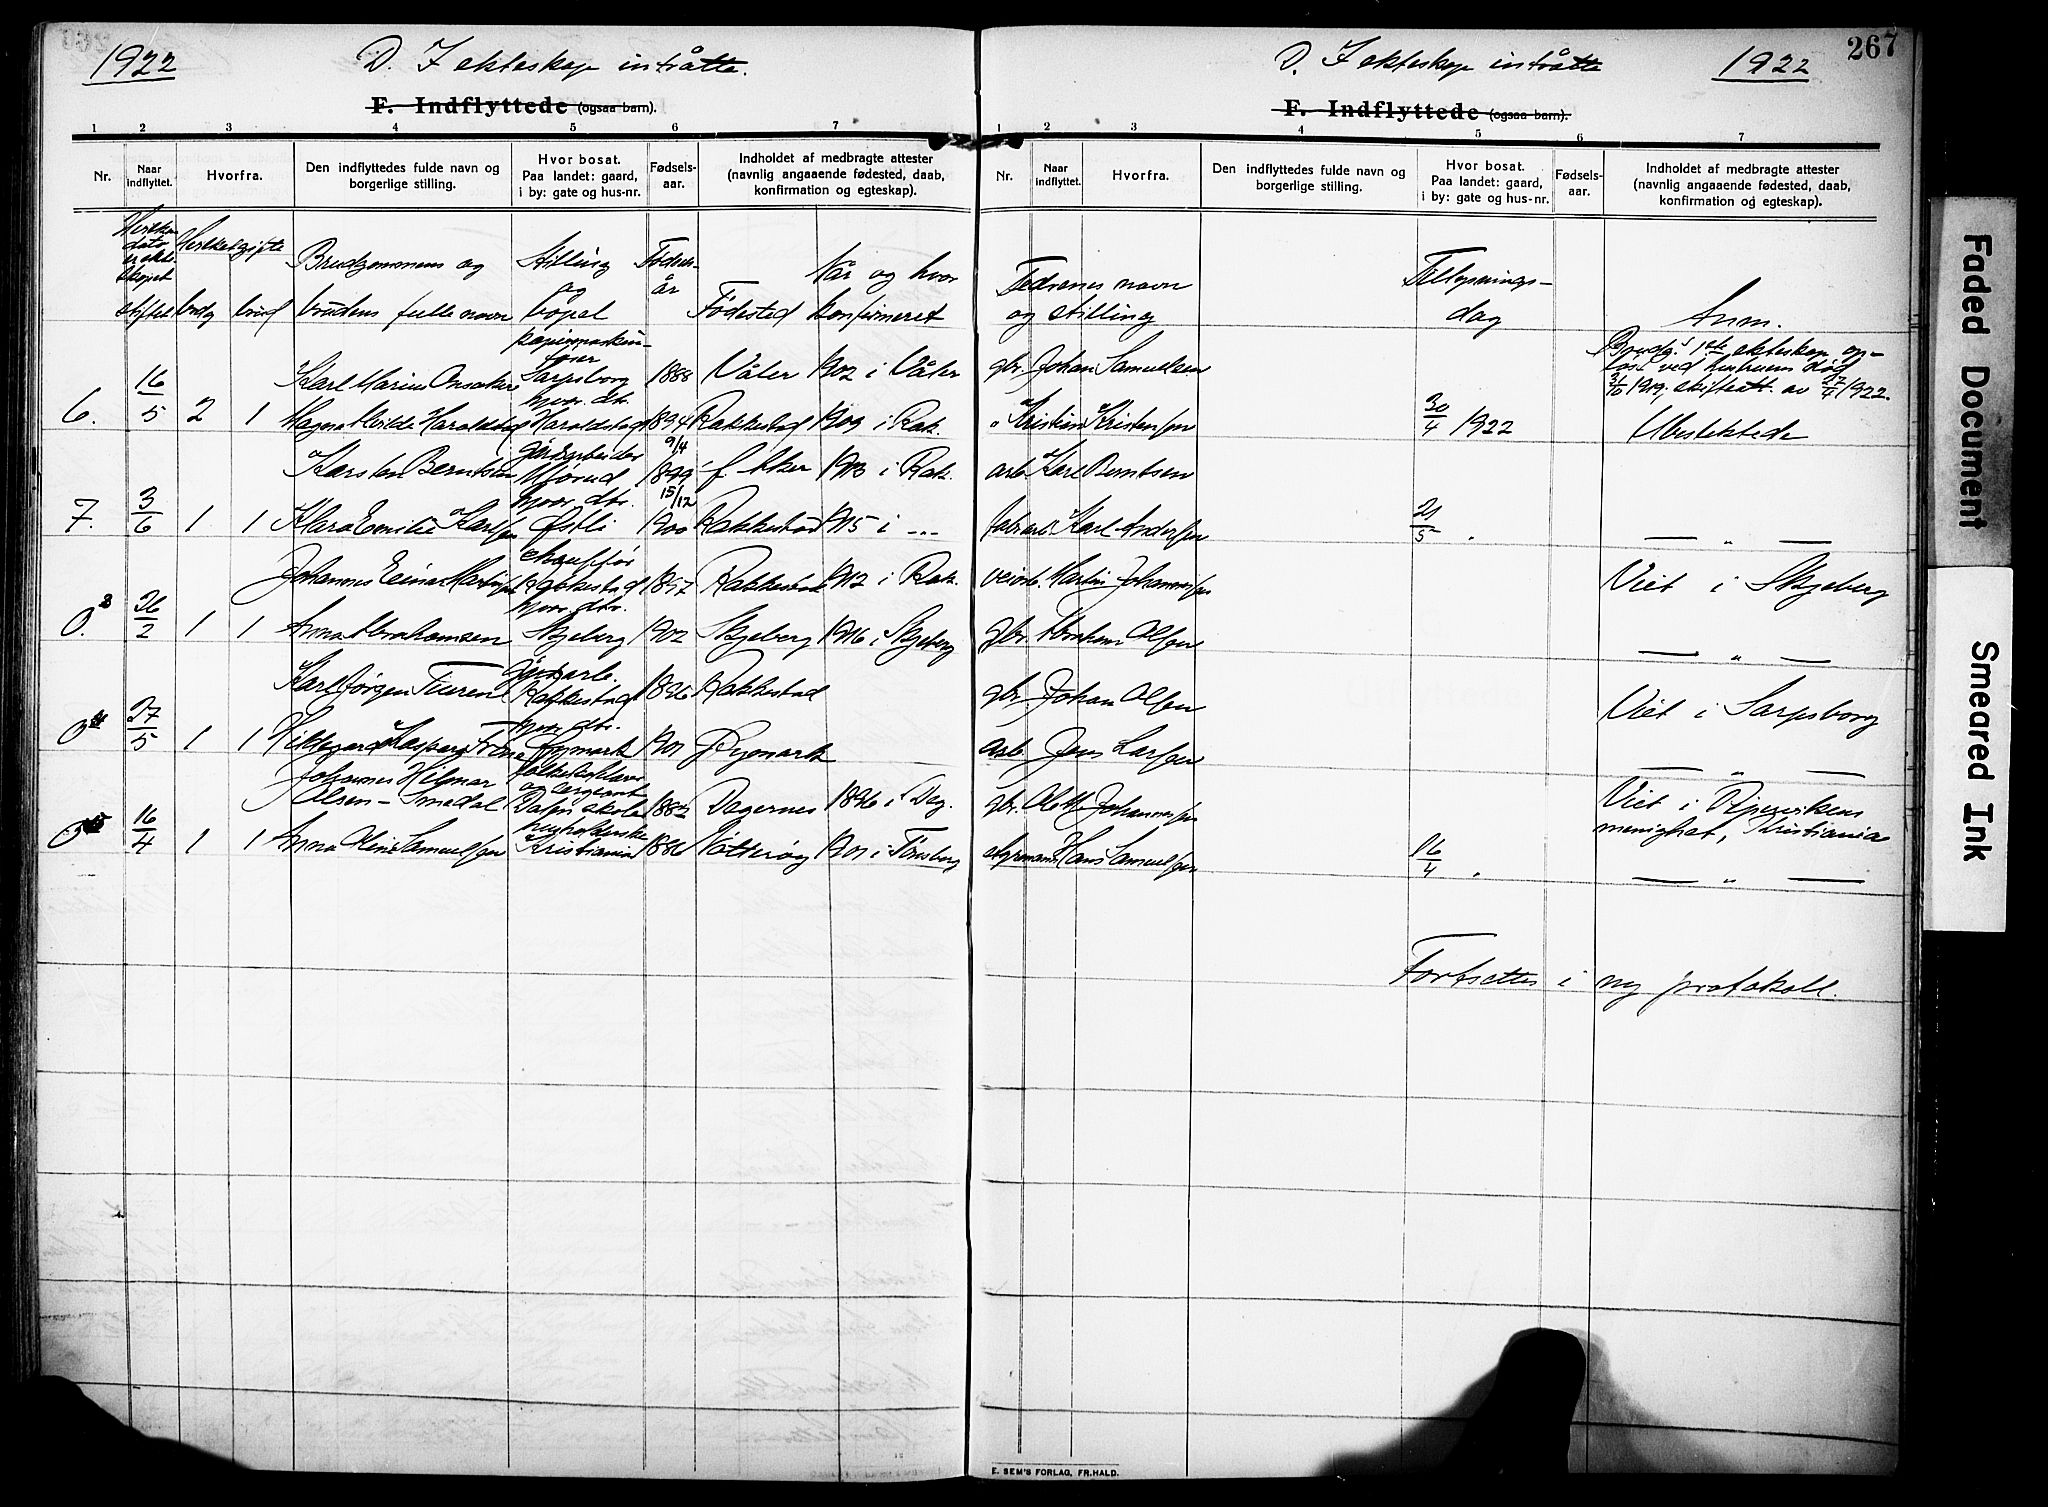 1922 D. I ekteskap intråtte.
F. Indflyttede (ogsaa barn).
1 2 3 4 5 6 7
Nr. Naar indflyttet. Hvorfra. Den indflyttedes fulde navn og borgerlige stilling. Hvor bosat. Paa landet: gaard, i by: gate og hus-nr. Fødsels-aar. Indholdet af medbragte attester (navnlig angaaende fødested, daab, konfirmation og egteskap).
dato ekte skapet stiftet
brudg brud
Brudgommens og brudens fulle navn
Stilling og bopel
Fødsels-år
Fødested
Når og hvor konfirmeret
papirmaskin-fører
16/5 Karl Marius Onsaker Sarpsborg 1888 Våler 1902 i Våler
6. 2 1 Magna Alvilde Haraldstad hjvr. dtr. Haraldstad 1894 Rakkestad 1909 i Rak.
Karsten Berntsen gårdsarbeider Mjørud 9/4 1899 f. Aker 1913 i Rak.
7. 3/6 1 1 Klara Emilie Karlsen hjvr. dtr. Østli 15/12 1900 Rakkestad 1915 i -"-
Johannes Einar Martinsen chauffør Rakkestad 1897 Rakkestad 1912 i Rak.
0.3 26/2 1 1 Anna Abrahamsen hjvr. dtr. Skjeberg 1902 Skjeberg 1916 i Skjeberg
Karl Jørgen Tuuren Rakkestad 1896 Rakkestad
0.4 27/5 1 1 Hildegard Kaspara hjvr. dtr. Rygmark 1901 Rygmark
Johannes Hilmar
Olsen-Smedal og sergeant skole 1883 Degernes 1896 i Deg.
0.5 16/4 1 1 Anna Oline Samuelsen Kristiania 1886 Nøtterøy 1901 i Tønsberg
267
D. I ekteskap intråtte 1922
F. Indflyttede (ogsaa barn).
1 2 3 4 5 6 7
Nr. Naar indflyttet. Hvorfra. Den indflyttedes fulde navn og borgerlige stilling. Hvor bosat. Paa landet: gaard, i by: gate og hus-nr. Fødsels-aar. Indholdet af medbragte attester (navnlig angaaende fødested, daab, konfirmation og egteskap).
Fedrenes navn og stilling
Tillysnings-dag
Anm.
Brudg.s 1ste ekteskap op-
gbr. Johan Samuelsen løst ved hustruens død
1919, skifteatt. av 27/4 1922.
" Kristian Kristensen 30/4 1922 Ubeslektede
arb. Karl Berntsen
fabrarb. Karl Andersen 21/5 " — " —
veiarb. Martin Johannesen Viet i Skjeberg
gbr. Abraham Olsen — " —
gbr. Johan Olsen Viet i Sarpsborg
arb. Jens Larsen — " —
gbr. Olette Johannesen Viet i Pipervikens
menighet, Kristiania
styrmann Hans Samuelsen 16/4 " — " —
Fortsettes i ny protokoll.
E. SEM'S FORLAG, FR.HALD.
Faded Document
Smeared Ink